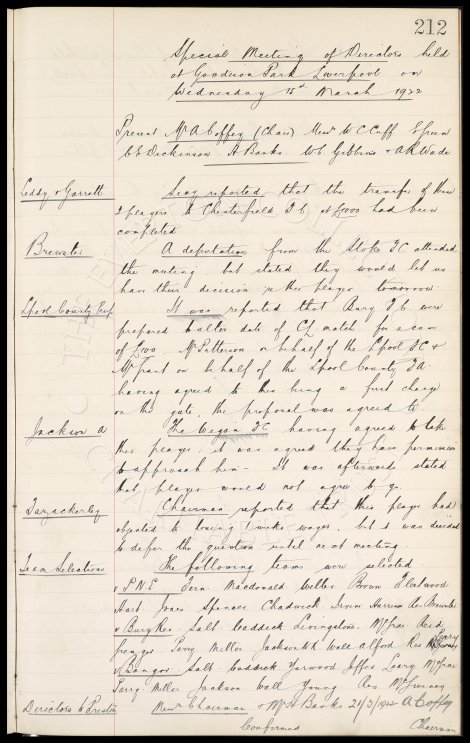 212
Special Meeting of Directors held
at Goodison Park Liverpool on
Wednesday 15th March 1922
Present Mr A Coffey (Chair) Messrs W C Cuff E Green
C E Dickinson H Banks W E Gibbins & A R Wade
Eddy & Garrett
Secy reported that the transfer of these
2 players to Chesterfield F C at £1000 had been
completed
Brewster
A deputation from the Stoke FC attended
the meeting, but stated they would let us
have their decision re this player tomorrow.
Lpool County Cup
It was reported that Bury F C were
prepared to alter date of CL match for a sum
of £200. Mr Patterson on behalf of the Lpool FC &
Mr Grant on behalf of the Lpool County FA
having agreed to this being a first charge
on the gate, the proposal was agreed to.
Jackson A
The Wigan FC having agreed to take
this player, it was agreed they have permission
to approach him - It was afterwards stated
that player would not agree to go.
Tarzackerley
Chairman reported that this player had
objected to losing 1 weeks wages, but it was decided
to defer the question until next meeting.
Team Selections
The following teams were selected
v P.N.E. Fern Macdonald Weller Brown Fleetwood
Hart Jones Spencer Chadwick Irvine Harrison Res Brewster
v Bury Res. Salt Caddick Livingstone McGrae Reid
Grenyer Parry Miller Jackworth Wall Alford Res Leary
v Bangor. Salt Caddick Yarwood Jeffes Leary McGrae
Parry Miller Jackson Wall Young Res
Directors to Preston
Messrs Chairman & Mr H Banks 21/3/1922 A Coffey
Confirmed Chairman